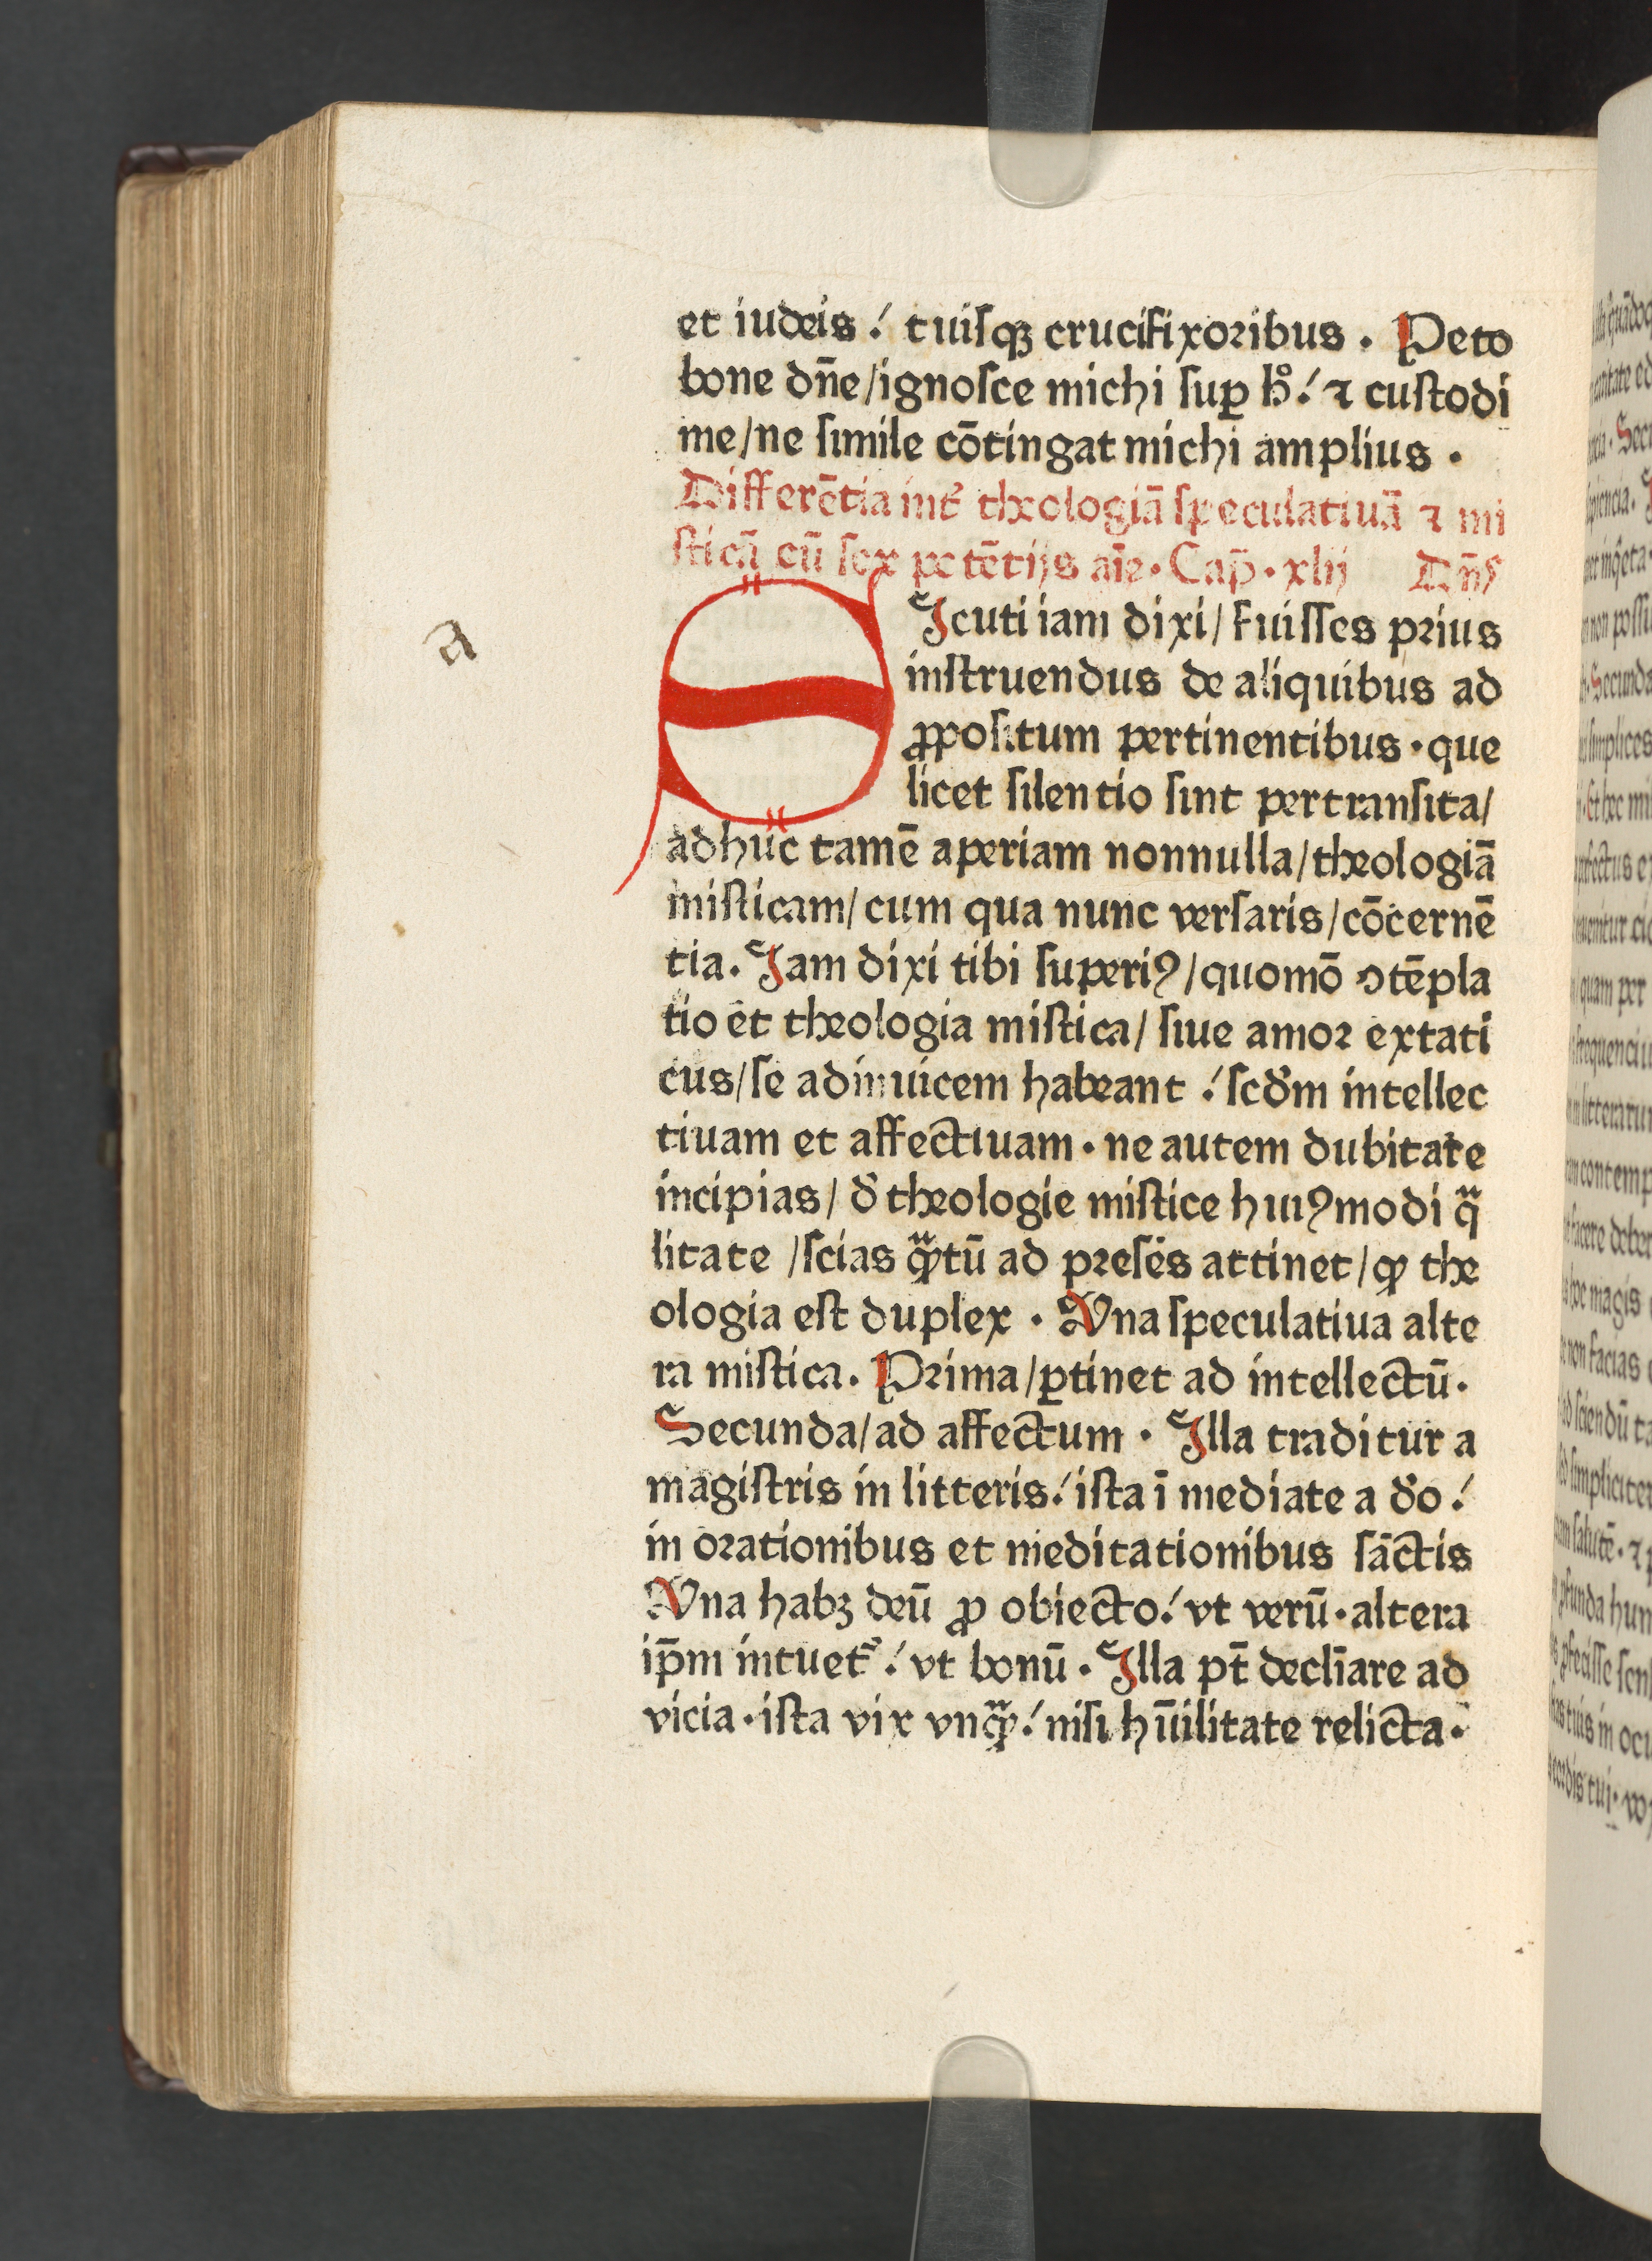 et iudeis / tuisqꝫ crucifixoribus . Peto
bone dn̄e/ignosce michi suꝑ h̊ / ⁊ custodi
me/ne simile cōtingat michi amplius .
Differētia int̾ theologiā speculatiuā ⁊ mi
sticā cū sex potētijs aīe . Cap̄ . xlij Dn̄s
a
SIcuti iam dixi/ fuisses prius
instruendus de aliquibus ad
ꝓpositum pertinentibus . que
licet silentio sint pertransita/
adhuc tamē aperiam nonnulla/theologiā
misticam/ cum qua nunc versaris/cōcernē
tia. Iam dixi tibi superiꝰ/quomō ꝯtēpla
tio et theologia mistica/ siue amor extati
cus/se adinuicem habeant / scd̾m intellec
tiuam et affectiuam . ne autem dubitare
incipias/ d̾ theologie mistice huiꝰmodi qͣ
litate /scias qͣꝫtū ad presēs attinet/ꝙ the
ologia est duplex . Vna speculatiua alte
ra mistica. Prima/ꝑtinet ad intellectū.
Secunda/ad affectum . Illa traditur a
magistris in litteris/ ista ī mediate a d̾o /
in orationibus et meditationibus sāctis
Vna habꝫ deū ꝓ obiecto/ vt verū . altera
ip̄m intuet̾ / vt bonū . Illa pt̄ declīare ad
vicia . ista vix vnqͣꝫ / nisi hūilitate relicta.